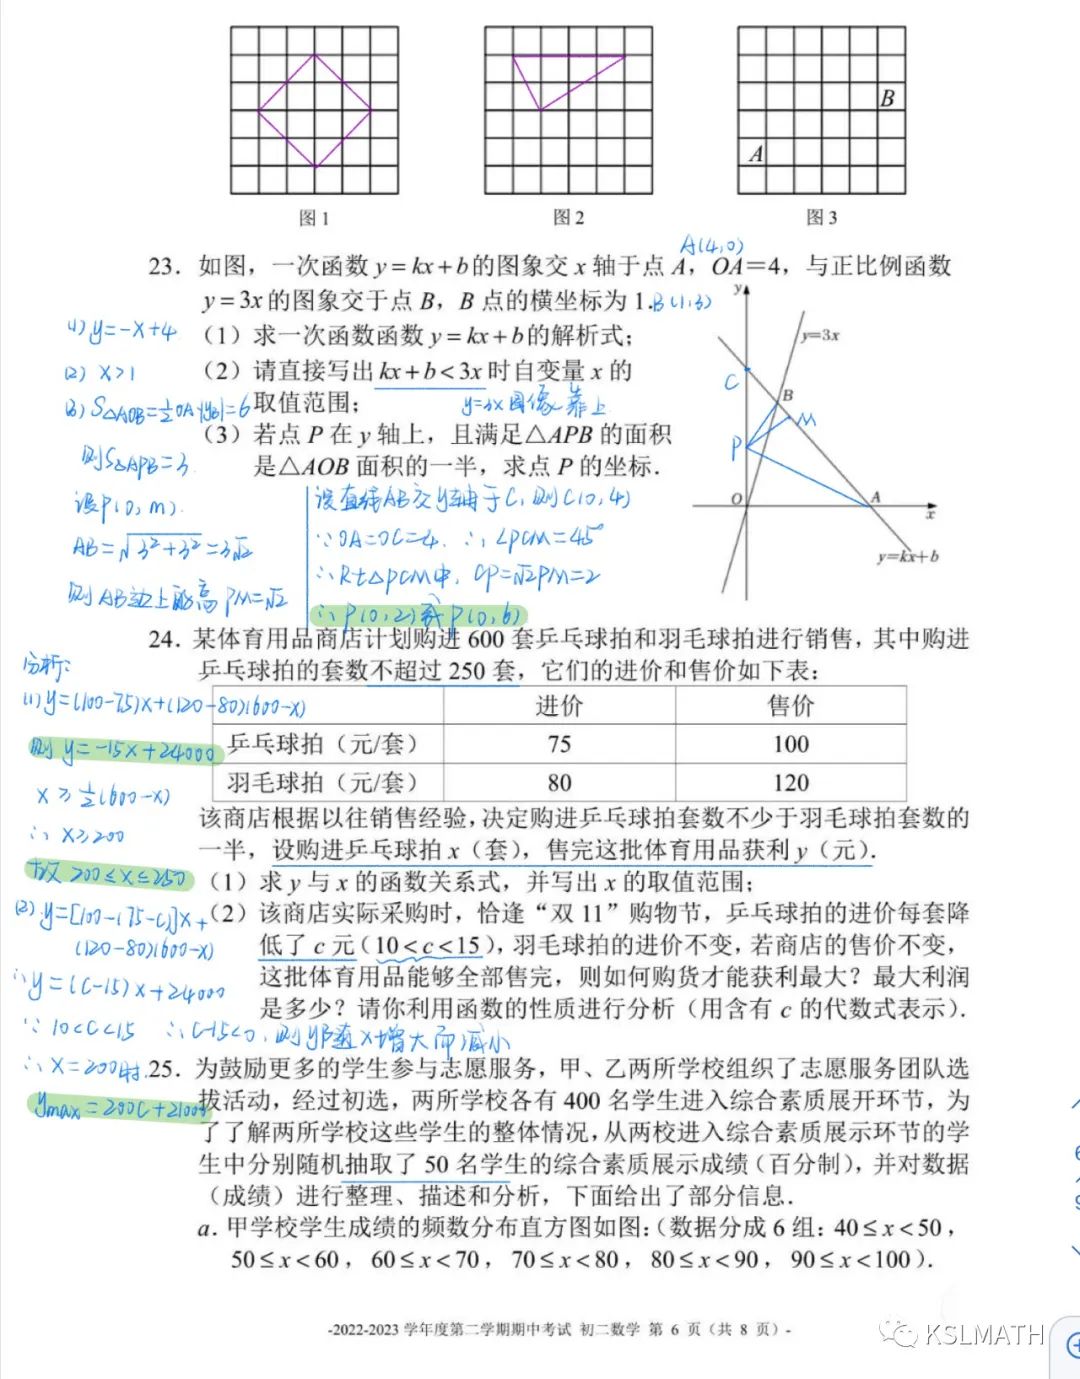 B
A
图1
图2
图3
A(4,0)
23. 如图，一次函数 y = kx + b 的图象交 x 轴于点 A，OA=4，与正比例函数
y = 3x 的图象交于点 B，B 点的横坐标为 1. B(1,3)
(1) y=-x+4
（1）求一次函数函数 y = kx + b 的解析式；
(2) x>1
（2）请直接写出 kx + b < 3x 时自变量 x 的
取值范围；
y=3x图像靠上
(3) S△AOB=½OA·|yB|=6
（3）若点 P 在 y 轴上，且满足△APB 的面积
是△AOB 面积的一半，求点 P 的坐标.
则S△APB=3
设P(0,m)
AB=√3²+3²=3√2
则AB边上的高PM=√2
设直线AB交y轴于C,则C(0,4)
∵OA=OC=4. ∴∠PCM=45°
∴Rt△PCM中, CP=√2PM=2
∴P(0,2)或P(0,6)
y
y=3x
C
B
M
P
O
A
x
y=kx+b
24. 某体育用品商店计划购进 600 套乒乓球拍和羽毛球拍进行销售，其中购进
乒乓球拍的套数不超过 250 套，它们的进价和售价如下表：
进价 售价
乒乓球拍（元/套） 75 100
羽毛球拍（元/套） 80 120
分析:
(1) y=(100-75)x+(120-80)(600-x)
则 y=-15x+24000
x≥½(600-x)
∴x≥200
故 200≤x≤250
该商店根据以往销售经验，决定购进乒乓球拍套数不少于羽毛球拍套数的
一半，设购进乒乓球拍 x（套），售完这批体育用品获利 y（元）.
（1）求 y 与 x 的函数关系式，并写出 x 的取值范围；
（2）该商店实际采购时，恰逢“双 11”购物节，乒乓球拍的进价每套降
低了 c 元（10 < c < 15），羽毛球拍的进价不变，若商店的售价不变，
这批体育用品能够全部售完，则如何购货才能获利最大？最大利润
是多少？请你利用函数的性质进行分析（用含有 c 的代数式表示）.
(2) y=[100-(75-c)]x+
(120-80)(600-x)
∴y=(c-15)x+24000
∵10<c<15 ∴c-15<0,则y随x增大而减小
∴x=200时.
ymax=200c+21000
25. 为鼓励更多的学生参与志愿服务，甲、乙两所学校组织了志愿服务团队选
拔活动，经过初选，两所学校各有 400 名学生进入综合素质展开环节，为
了了解两所学校这些学生的整体情况，从两校进入综合素质展示环节的学
生中分别随机抽取了 50 名学生的综合素质展示成绩（百分制），并对数据
（成绩）进行整理、描述和分析，下面给出了部分信息.
a. 甲学校学生成绩的频数分布直方图如图：（数据分成 6 组：40 ≤ x < 50，
50 ≤ x < 60， 60 ≤ x < 70， 70 ≤ x < 80， 80 ≤ x < 90， 90 ≤ x < 100）.
-2022-2023 学年度第二学期期中考试 初二数学 第 6 页（共 8 页）-
KSLMATH